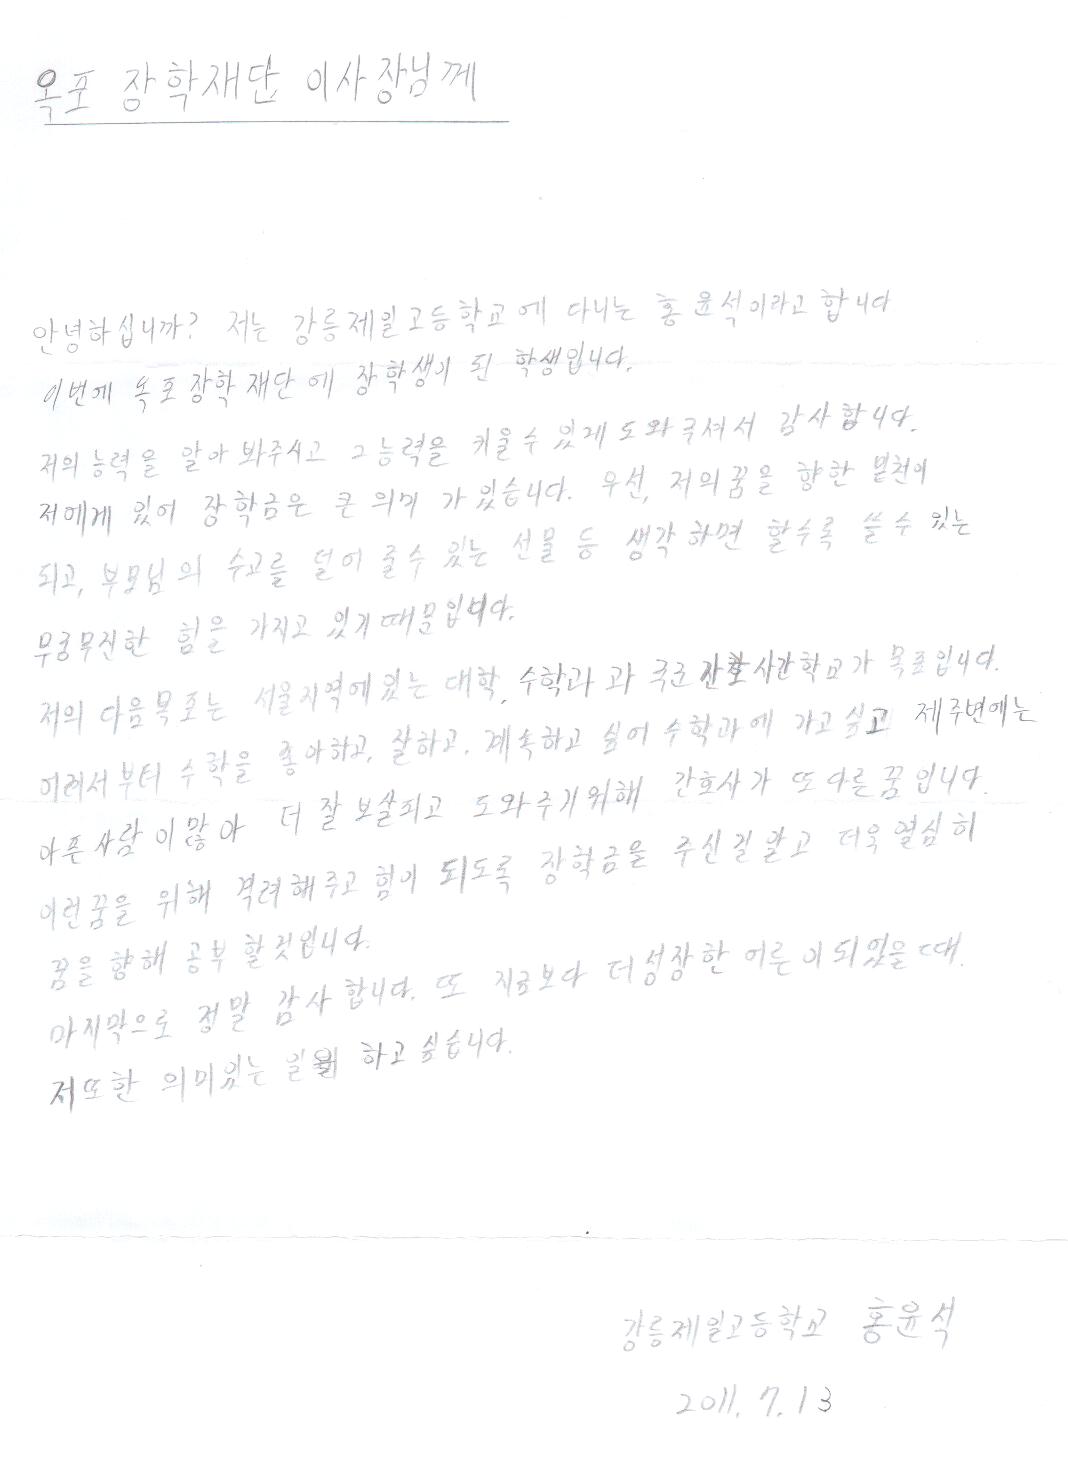 옥포 장학재단 이사장님께
안녕하십니까? 저는 강릉제일고등학교에 다니는 홍윤석이라고 합니다
이번에 옥포장학재단에 장학생이 된 학생입니다.
저의 능력을 알아 봐주시고 그 능력을 키울 수 있게 도와주셔서 감사합니다.
저에게 있어 장학금은 큰 의미가 있습니다. 우선, 저의 꿈을 향한 밑천이
되고, 부모님의 수고를 덜어 줄 수 있는 선물 등 생각하면 할수록 쓸 수 있는
무궁무진한 힘을 가지고 있기 때문입니다.
저의 다음 목표는 서울지역에 있는 대학, 수학과 과 국군간호사관학교가 목표입니다.
어려서부터 수학을 좋아하고, 잘하고, 계속하고 싶어 수학과에 가고싶고 제주변에는
아픈 사람이 많아 더 잘 보살피고 도와주기위해 간호사가 또 다른 꿈입니다.
이런꿈을 위해 격려해주고 힘이 되도록 장학금을 주신걸 알고 더욱 열심히
꿈을 향해 공부 할것입니다.
마지막으로 정말 감사합니다. 또 지금보다 더 성장한 어른이 되있을 때.
저또한 의미있는 일 하고 싶습니다.
강릉제일고등학교 홍윤석
2011. 7. 13